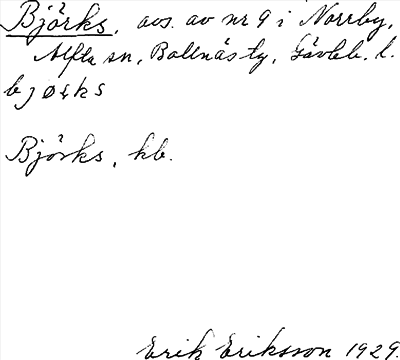 Björks, avs. av nr 9 i Norrby,
Alfta sn, Bollnäs tg, Gävleb. l.
bjørks
Björks, kb.
Erik Eriksson 1929.